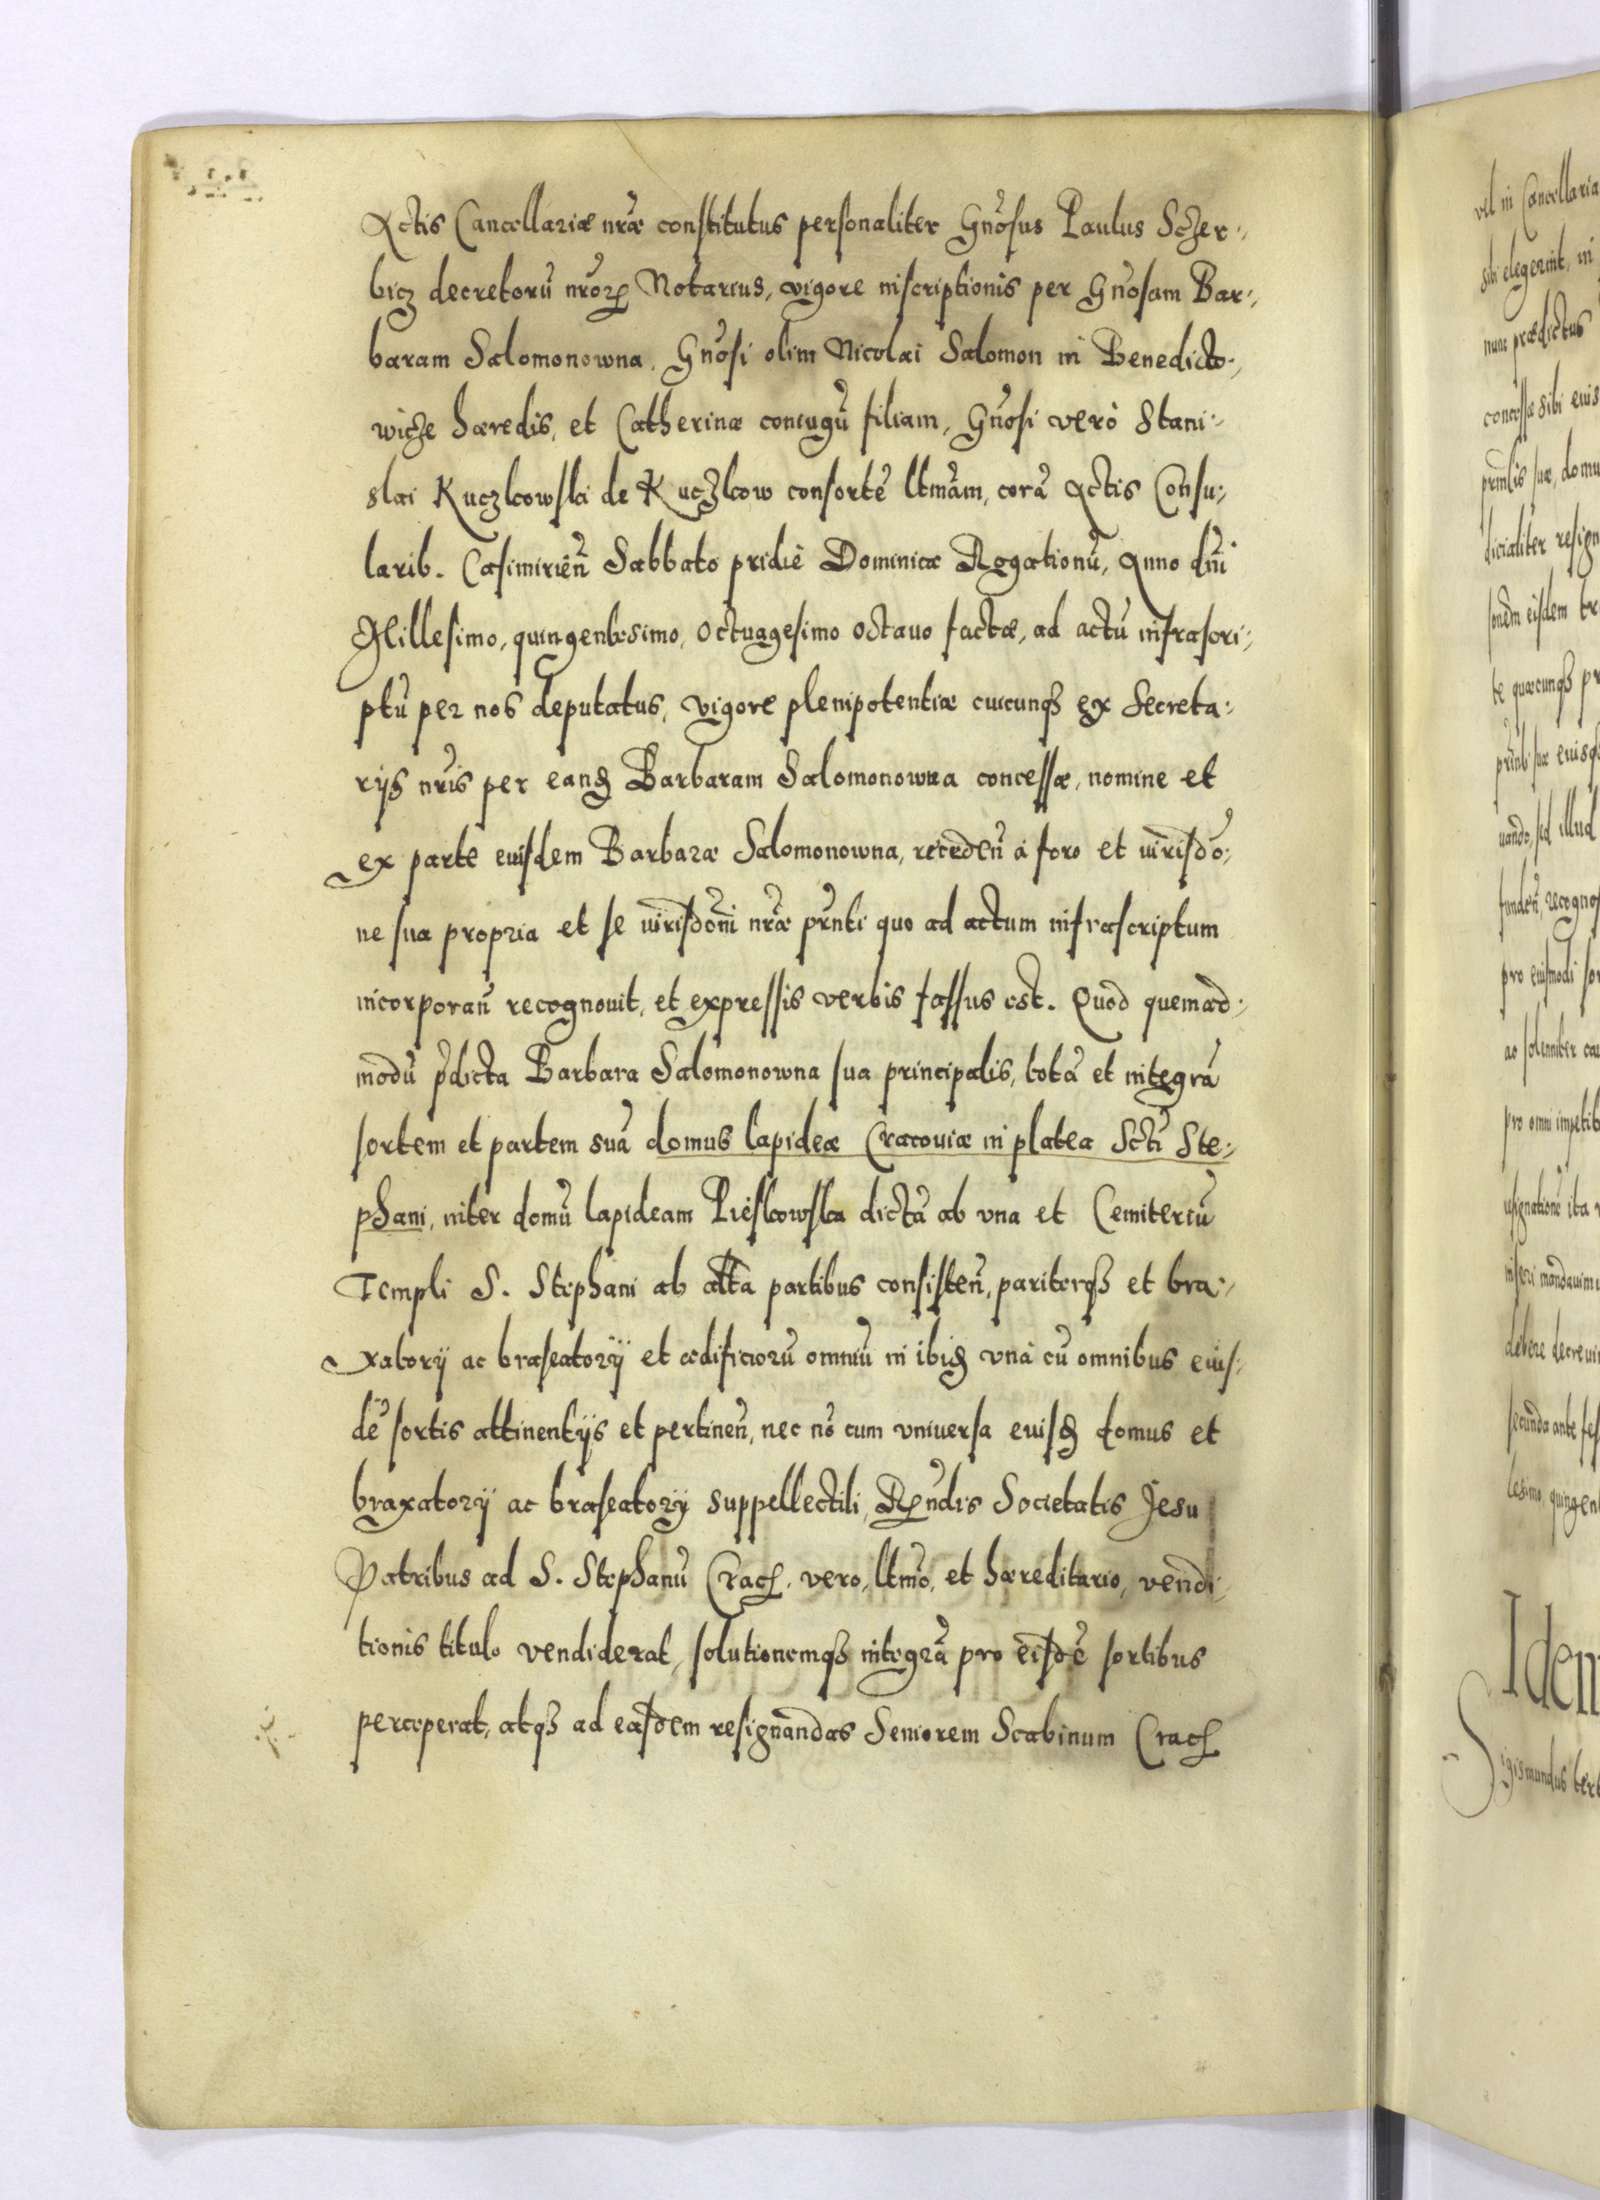 Actis Cancellariæ nr̃æ constitutus personaliter Gñosus Paulus Sczer-
bicz decretorũ nr̃oꝝ Notarius, vigore inscriptionis per Gñosam Bar-
baram Salomonowna, Gñosi olim Nicolai Salomon in Benedicto-
wicze hæredis, et Catherinæ coniugũ filiam, Gñosi verò Stani-
slai Kuczkowski de Kuczkow consortẽ ltm̃am, corã Actis Consu-
larib. Casimirieñ Sabbato pridiè Dominicæ Rogationũ, Anno dñi
Millesimo, quingentesimo, octuagesimo octauo factæ, ad actũ infrascri-
ptũ per nos deputatus, vigore plenipotentiæ cuicunqꝫ ex Secreta-
rijs nr̃is per eandꝫ Barbaram Salomonowna concessæ, nomine et
ex parte euisdem Barbaræ Salomonowna, recedeñ à foro et iũrisdõ-
ne sua propria et se iũrisdõni nr̃æ pr̃nti quo ad actum infrascriptum
incorporañ recognouit, et expressis verbis fassus est. Quod quemad-
modũ p̃dicta Barbara Salomonowna sua principalis, totã et integrã
sortem et partem suã domus lapideæ Cracouiæ in platea Scti Ste-
phani, inter domũ lapideam Pieskowska dictã ab vna et Cemiteriũ
Templi S. Stephani ab alt̃a partibus consisteñ, pariterqꝫ et bra-
xatorij ac braseatorij et ædificiorũ omniũ in ibidꝫ vnà cũ omnibus euis-
dẽ sortis attinentijs et pertineñ, nec nõ cum vniuersa euisdꝫ domus et
braxatorij ac braseatorij suppellectili, Rꝑndis Societatis Jesu
Patribus ad S. Stephanũ Crac̃. vero, ltm̃o, et hæreditario, vendi-
tionis titulo vendiderat, solutionemqꝫ integrã pro eisdẽ sortibus
perceperat, atqꝫ ad easdem resignandas Seniorem Scabinum Crac̃
vel in Cancellaria
sibi elegerint, in
nunc prædictus
concessæ sibi euis
prñlis suæ, domu
dicialiter resign
te quæcunqꝫ pr
uando, sed illud
fundeñ, recognos
pro euismodi sor
ac solenniter cau
pro omni impetit
resignationẽ ita v
inseri mandauimu
debere decreui
secunda ante fes
lesimo, quingent
Idem
Sigismundus tert